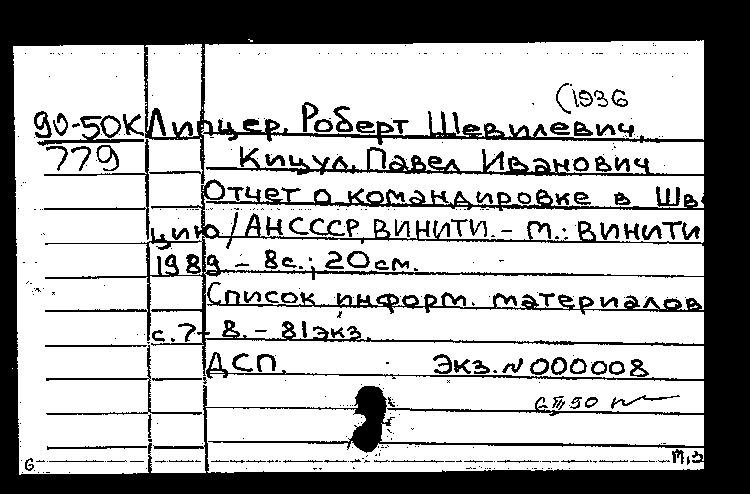 (1936
90-50К Липцер, Роберт Шевилевич,
779 Кицул, Павел Иванович
Отчет о командировке в Шве
цию / АН СССР, ВИНИТИ. - М.: ВИНИТИ
1989 - 8с.; 20см.
Список информ. материалов
с.7-8. - 81экз.
ДСП. Экз. N 000008
6 М,З